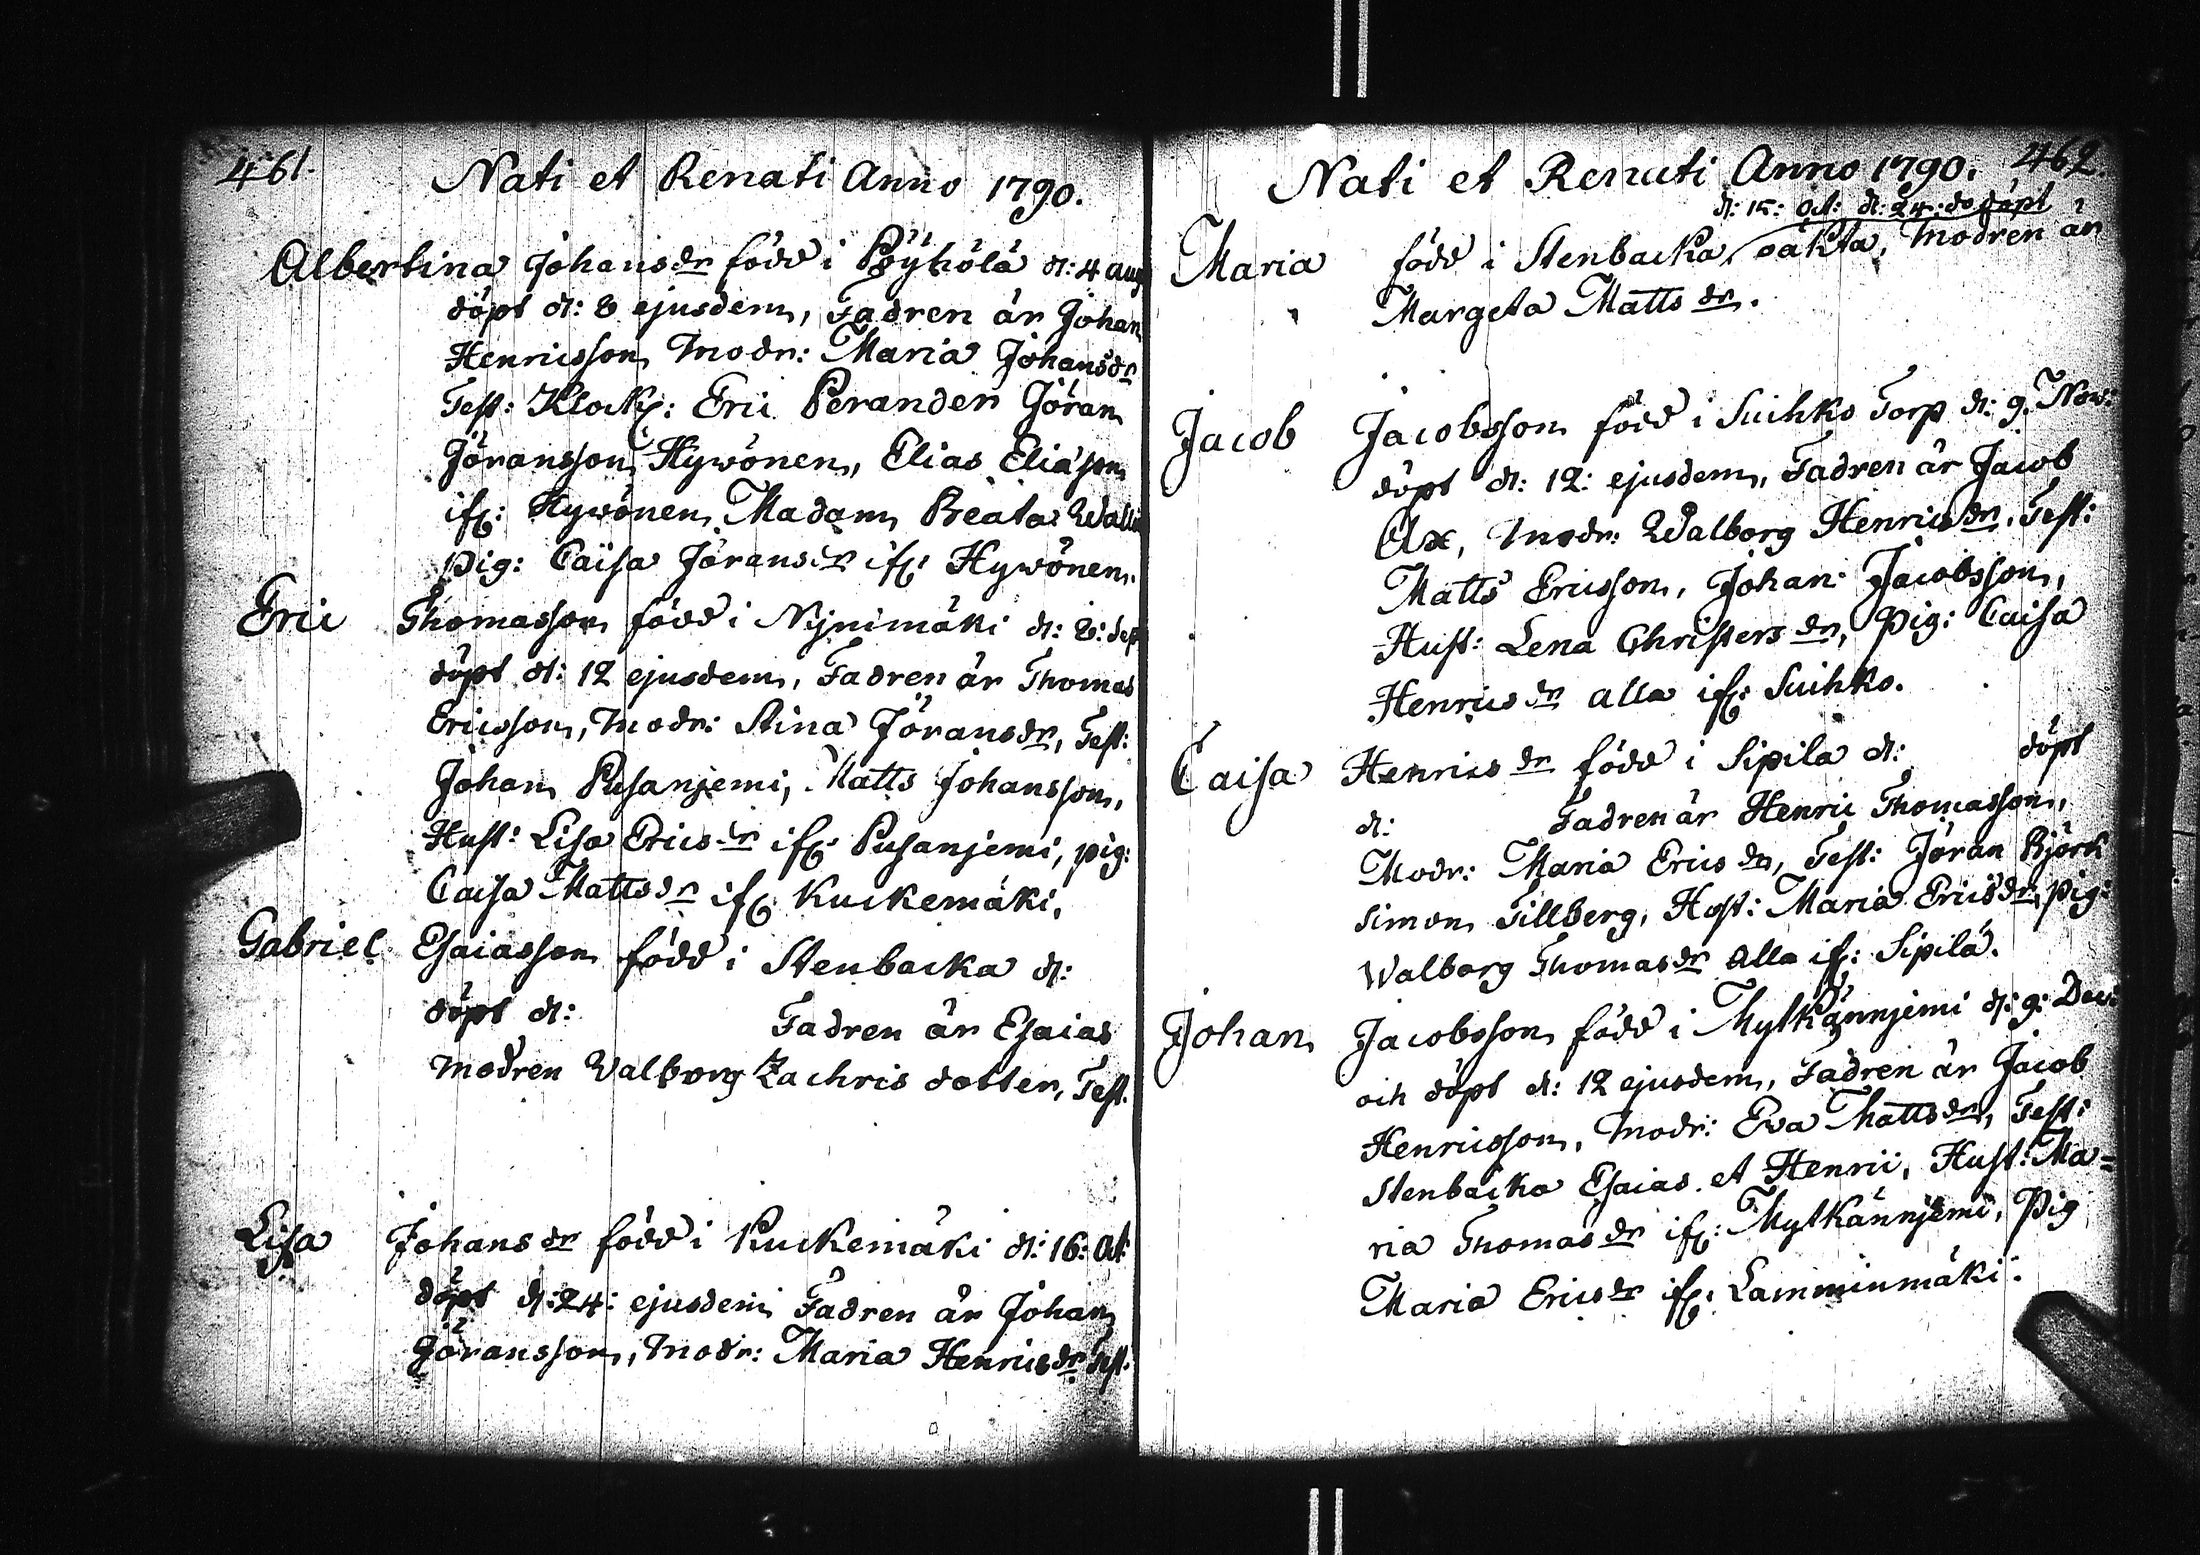 461.
Nati et Renati Anno 1790.
Albertina Johans dr född i Pöyhölä d: 4 aug
döpt d: 8 ejusdem, Fadren är Johan
Henricsson Modr: Maria Johans dr
Test: Klock: Eric Perander Jöran
Jöransson Hywönen, Elias Eliasson
ifr: Hywönen, Madam Beata Wallin
pig: Caisa Jörans dr ifr: Hywönen.
Eric Thomasson född i Nijnimäki d: 8: sep
döpt d: 12 ejusdem, Fadren är Thomas
Ericsson, Modr: Stina Jörans dr, Test:
Johan Pusanjemi, Matts Johansson,
Hust: Lisa Erics dr ifr: Pusanjemi, pig:
Caisa Matts dr ifr: Kuckemäki.
Gabriel Esaiasson född i Stenbacka d:
döpt d: Fadren är Esaias
Modren Walborg Zachris dotter, Test.
Lisa Johans dr född i Kuckemäki d: 16: Oct:
döpt d: 24: ejusdem Fadren är Johan
Jöransson, Modr: Maria Henrics dr Test:
Nati et Renati Anno 1790. 462.
d: 15: Oct: d: 24: do döpt
Maria född i Stenbacka, oäkta, Modren är
Margeta Matts dr.
Jacob Jacobsson född i Suihko Torp d: 9. Now:
döpt d: 12: ejusdem, Fadren är Jacob
Ax, Modr: Walborg Henrics dr, Test:
Matts Ericsson, Johan Jacobsson,
Hust: Lena Christers dr, Pig: Caisa
Henrics dr alla ifr: Suihko.
Caisa Henrics dr född i Sipila d: döpt
d: Fadren är Henric Thomasson,
Modr: Maria Erics dr, Test: Jöran Björk
Simon Tillberg, Hust: Maria Erics dr, pig:
Walborg Thomas dr alla ifr: Sipilä.
Johan Jacobsson född i Mylkännjemi d: 9: Dec:
och döpt d: 12 ejusdem, Fadren är Jacob
Henricsson, Modr: Eva Matts dr, Test:
Stenbacka Esaias et Henric, Hust: Ma=
ria Thomas dr ifr: Mylkännjemi, Pig
Maria Erics dr ifr: Lamminmäki.